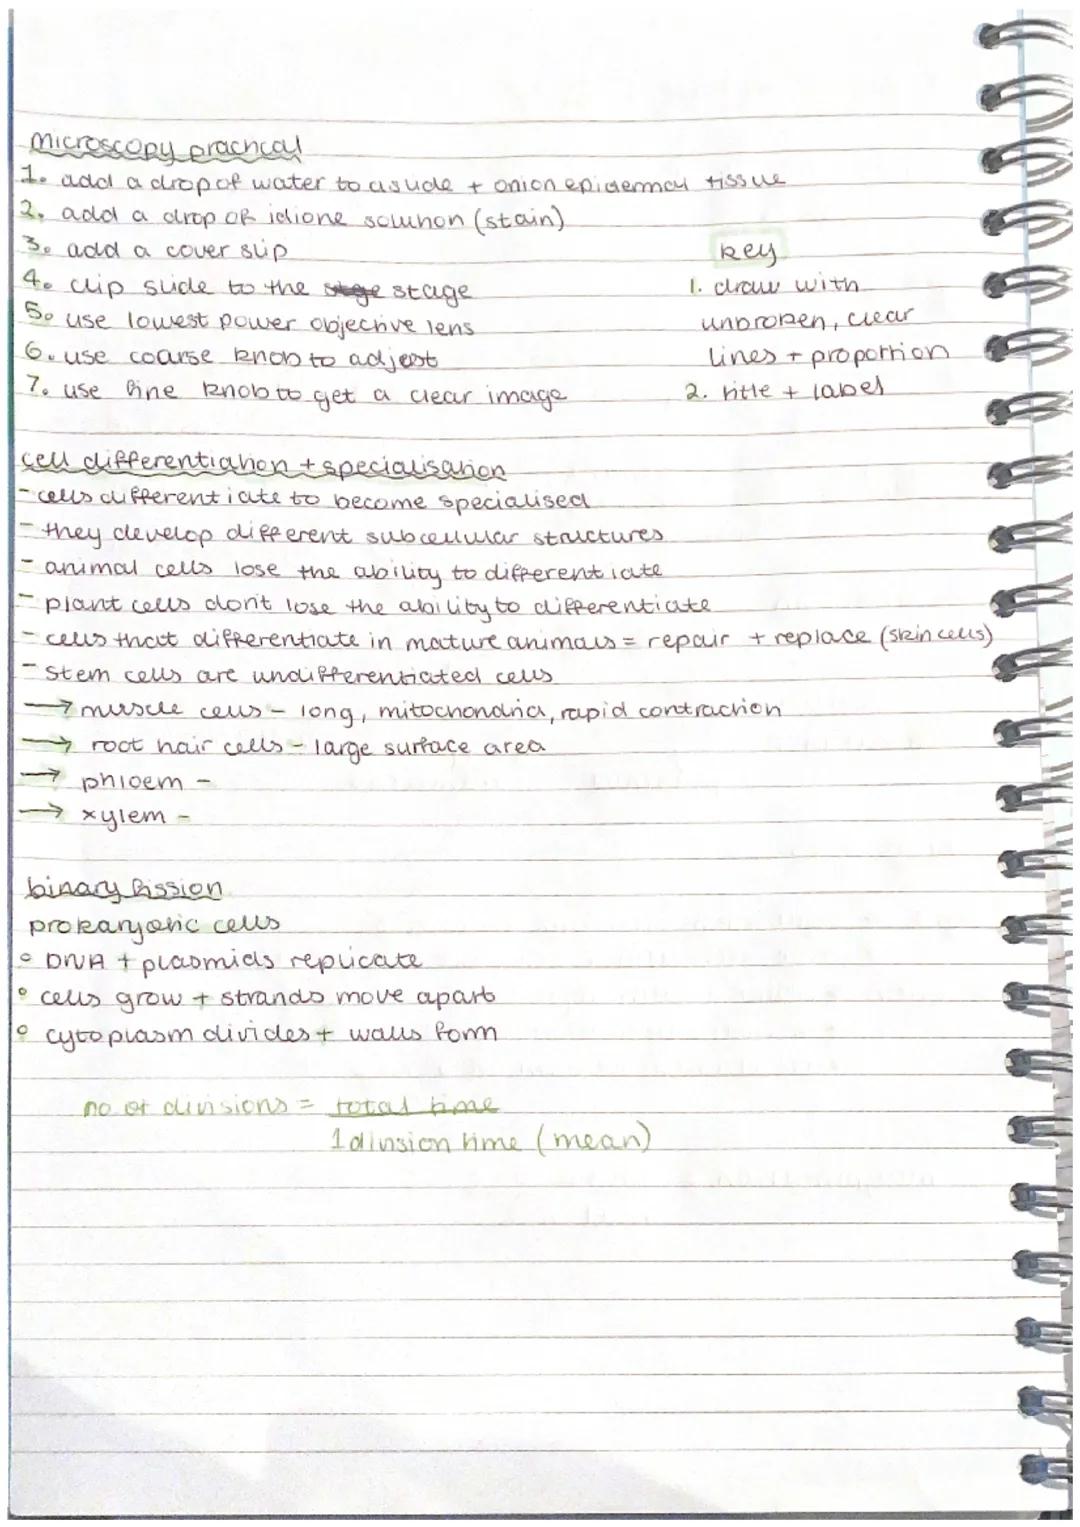 microscopy practical
1. add a drop of water to a slide + onion epidermal tissue
2. add a drop of idione solution (stain)
3. add a cover slip
4. clip slide to the stge stage
5. use lowest power objective lens
6. use coarse knob to adjest
7. use fine knob to get a clear image
key
1. draw with
unbroken, clear
lines + proportion
2. title + label
cell differentiation + specialisation
- cells differentiate to become specialised
- they develop different subcellular structures
- animal cells lose the ability to differentiate
- plant cells don't lose the ability to differentiate
- cells that differentiate in mature animals = repair + replace (skin cells)
- stem cells are undifferentiated cells
→ muscle cells - long, mitochondria, rapid contraction
→ root hair cells - large surface area
→ phloem -
→ xylem -
binary fission
prokaryotic cells
• DNA + plasmids replicate
• cells grow + strands move apart
• cytoplasm divides + walls form
no of divisions = total time
1 division time (mean)